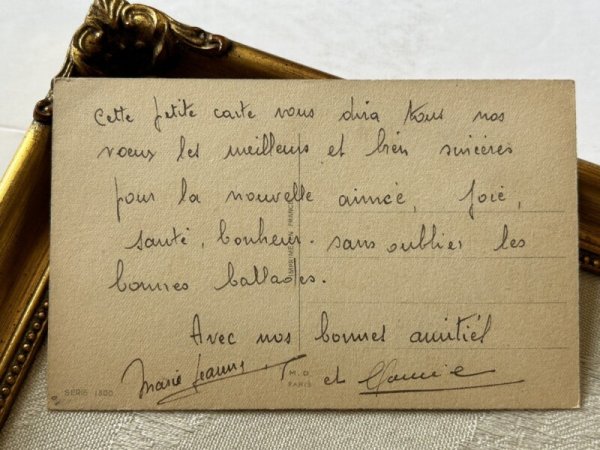 Cette petite carte vous dira tous nos
vœux les meilleurs et bien sincères
pour la nouvelle année, joie,
santé, bonheur. sans oublier les
bonnes ballades.
Avec nos bonnes amitiés
Marie Jeanne
et
M.D.
PARIS
SERIE 1500